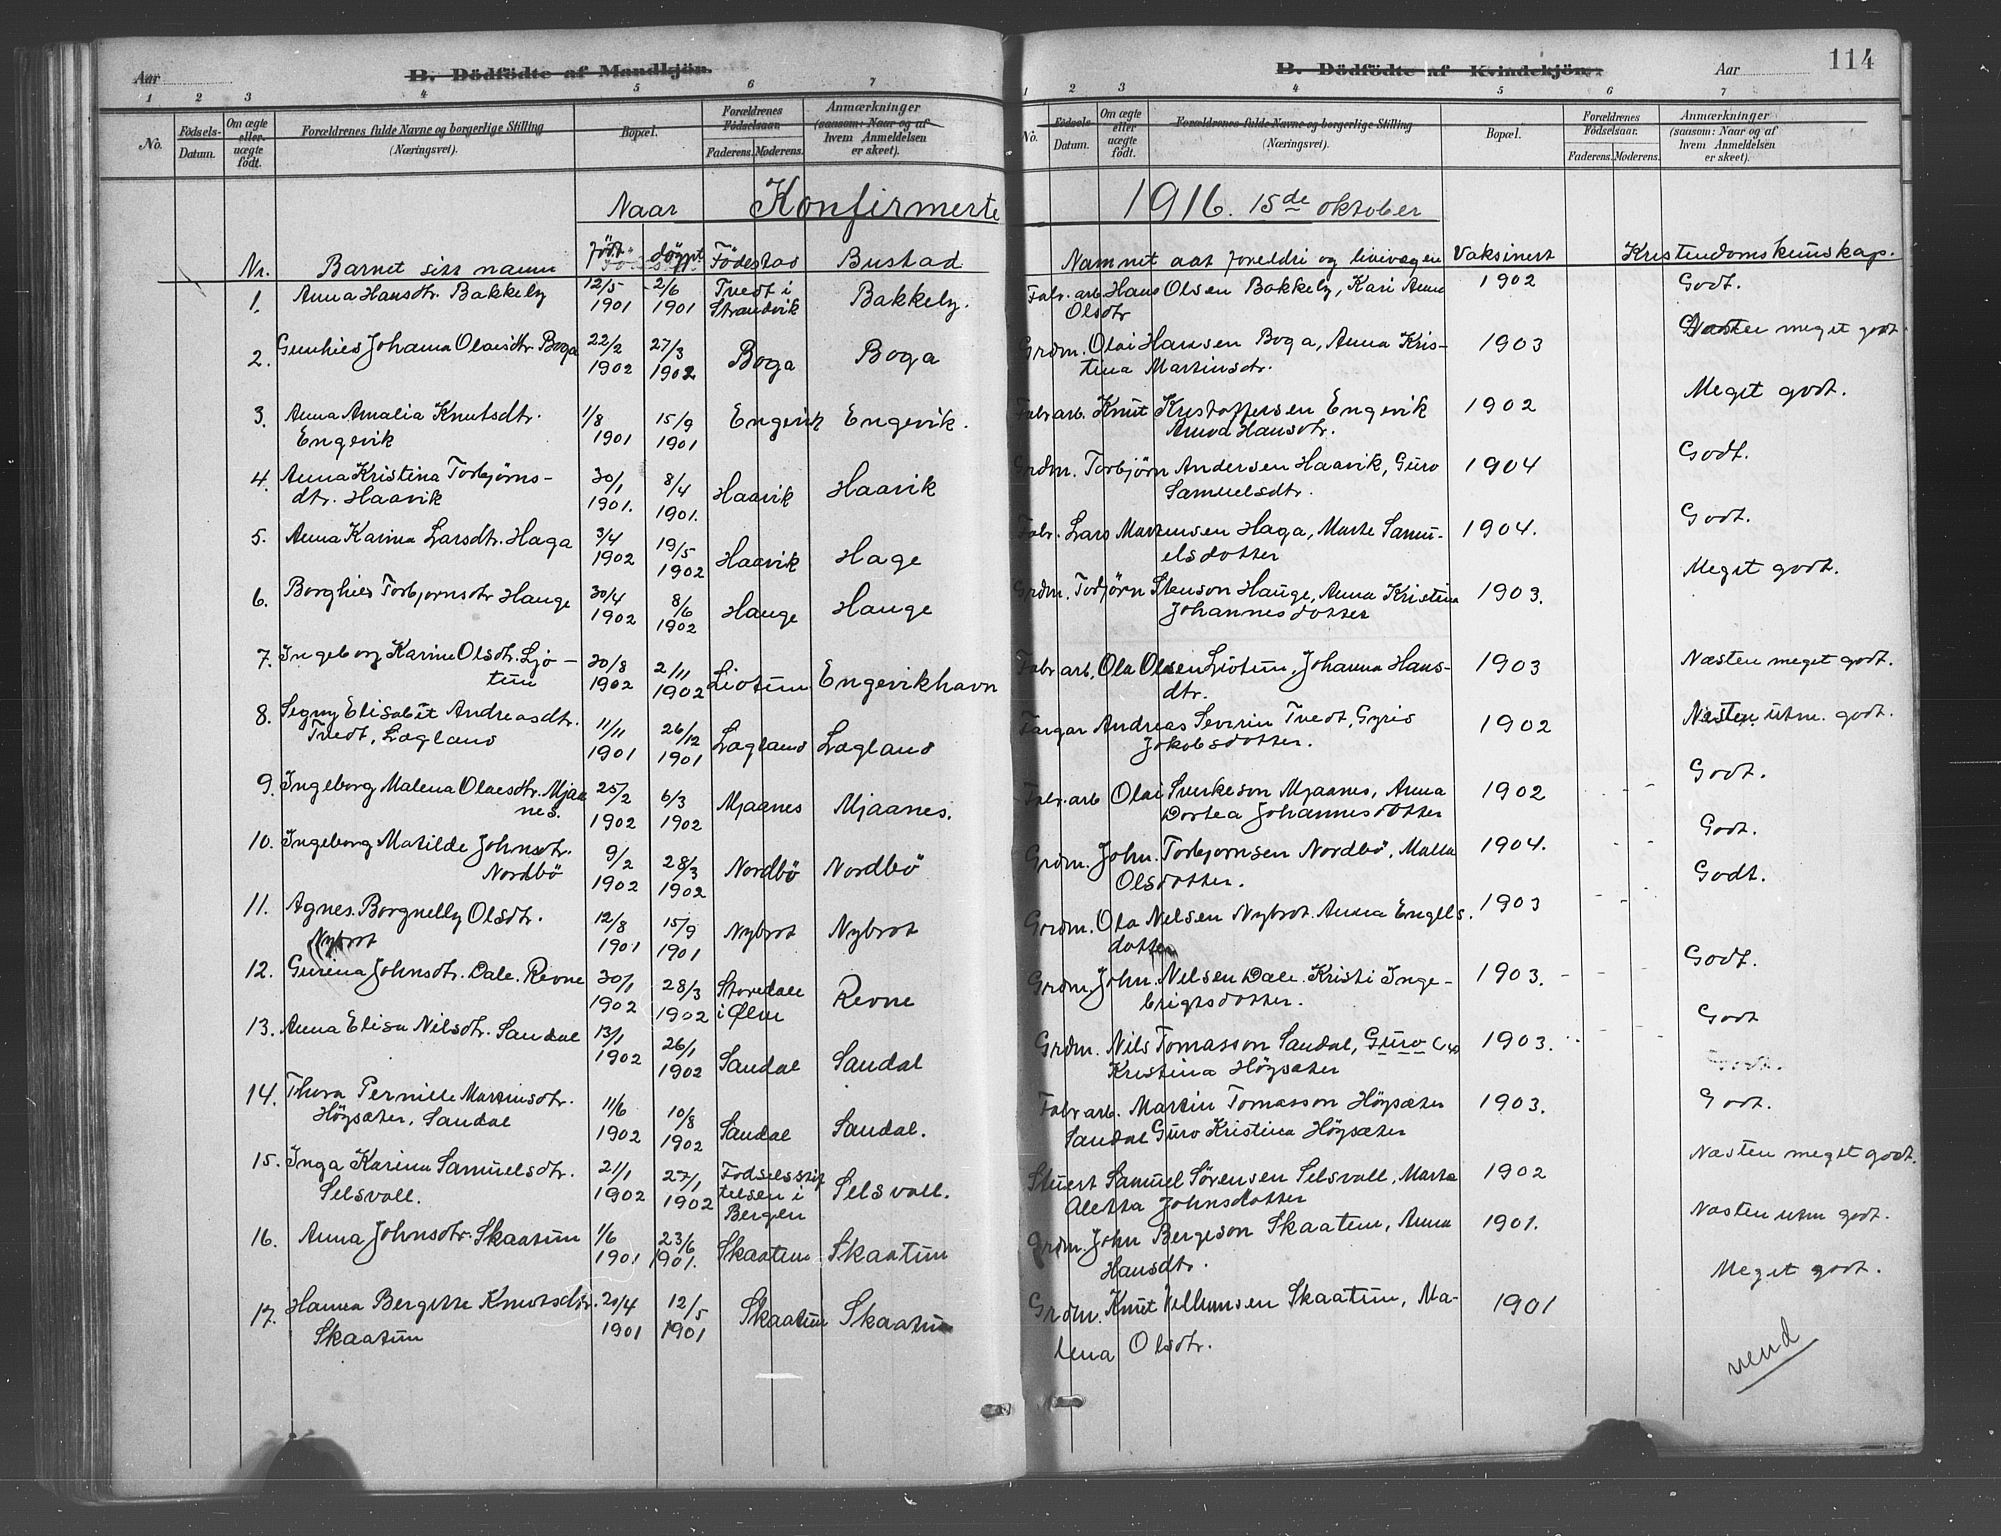 114
Aar B. Dödfödte af Mandkjön. B. Dödfödte af Kvindekjön. Aar
1 2 3 4 5 6 7 1 2 3 4 5 6 7
No. Födsels-Datum. Om ægte eller uægte födt. Forældrenes fulde Navne og borgerlige Stilling (Næringsvei). Bopæl. Forældrenes Födselsaar. Faderens. Moderens. Anmærkninger (saasom: Naar og af hvem Anmeldelsen er skeet).
No. Födsels Datum. Om ægte eller uægte födt. Forældrenes fulde Navne og borgerlige Stilling (Næringsvei). Bopæl. Forældrenes Födselsaar. Faderens. Moderens. Anmærkninger (saasom: Naar og af hvem Anmeldelsen er skeet).
Naar Konfirmerte 1916. 15de oktober
Nr. Barnet sitt namn født døypt Födestad Bustad Namnet aat foreldri og livivegen Vaksinert Kristendomskunskap.
1. Anna Hansdtr. Bakkely 12/5 1901 2/6 1901 Tvedt i Strandvik Bakkely. Fabr. arb. Hans Olsen Bakkely, Kari Anna Olsdtr 1902 Godt.
2. Johanna Olaisdtr. Boga 22/2 1902 27/3 1902 Boga Boga Grdm. Olai Hansen Boga, Anna Kristina Martinsdtr. 1903 Næsten meget godt
3. Anna Amalia Knutsdtr. Engevik 1/8 1901 15/9 1901 Engevik Engevik. Fabr arb. Knut Kristoffersen Engevik Hansdtr. 1902 Meget godt.
4. Anna Kristina Torbjørns-dtr. Haavik 30/1 1901. 8/4 1901. Haavik Haavik Grdm. Torbjørn Andersen Haavik, Guro Samuelsdtr. 1904 Godt.
5. Anna Karina Larsdtr. Haga 3/4 1902 19/5 1902 Haavik Hage Fabr. Lars Martensen Haga, Marte Samu-elsdotter 1904. Godt.
6. Borghild Torbjornsdtr Hauge 30/4 1902 8/6 1902 Hauge Hauge Grdm. Torbjørn Stenson Hauge, Anna Kristina Johannesdotter 1903. Meget godt.
7. Ingeborg Karine Olsdtr. Ljo-tun 30/8 1902 2/11 1902 Liotun Engevikhavn Fabr arb. Ola Olsen Liotun, Johanna Hans-dtr. 1903 Næsten meget godt.
8. Signy Elisabet Andreasdtr. Tvedt, Lægland 11/11 1901 26/12 1901 Lægland Lægland Fargar Andreas Severin Tvedt, Gyrid Jakobsdotter. 1902 Næsten utm. godt.
9. Ingeborg Malena Olaisdtr. Mjaanes. 25/2 1902 6/3 1902 Mjaanes Mjaanes. Fabr. arb Olai Mjaanes, Anna Dortea Johannesdotter 1902 Godt.
10. Ingeborg Matilde Johnsdtr. Nordbö 9/2 1902 28/3 1902 Nordbö Nordbö Grdm. John. Torbjornsen Nordbö, Malla Olsdotter. 1904. Godt.
11. Agnes. Borgnelly Olsdtr. Nybrot 12/8 1901 15/9 1901 Nybrot Nybrot Grdm. Ola Nelsen Nybrot. Anna Engels. dotter 1903 Godt.
12. Gurina Johnsdtr. Dale. Revne 30/1 1902 28/3 1902 Storedale i Ølve Revne Grdm. John. Nilsen Dale. Kristi Inge-brigtsdotter. 1903. Godt.
13. Anna Elisa Nilsdtr. Sandal 13/1 1902 26/1 1902 Sandal Sandal Grdm. Nils Tomasson Sandal, Guro Kristina Höysæter 1903. Godt
14. Thora Pernille Martinsdtr. Höysæter, Sandal 11/6 1902 10/8 1902 Sandal Sandal. Fabr arb. Martin Tomasson Höysæter Sandal Guro Kristina Höysæter 1903. Godt.
15. Inga Karina Samuelsdtr. Selsvoll. 21/1 1902 27/1 1902 Fodselsstif telsen i Bergen Selsvoll. Stuert Samuel Sørensen Selsvoll, Marta Aletta Johnsdotter 1902 Næsten meget godt.
16. Anna Johnsdtr. Skaatun 1/6 1901 23/6 1901. Skaatun Skaatun Grdm. John Bergeson Skaatun, Anna Hansdtr. 1901. Næsten utm godt.
17. Hanna Bergitte Knutsdtr. Skaatun 20/4 1901 12/5 1901 Skaatun Skaatun Grdm. Knut Skaatun, Ma-lena Olsdtr. 1901 Meget godt.
vend